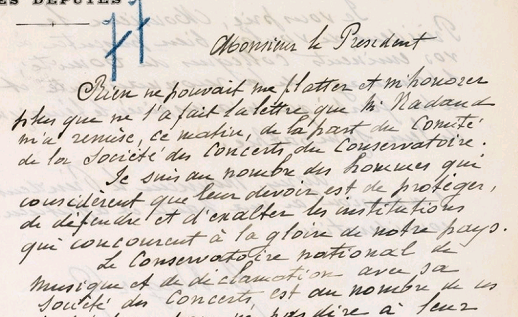 ES DÉPUTÉS
77
Monsieur le President
Rien ne pouvait me flatter et m'honorer
plus que ne l'a fait la lettre que Mr Nadaud
m'a remise, ce matin, de la part du Comité
de la Société des Concerts du Conservatoire.
Je suis au nombre des hommes qui
considèrent que leur devoir est de protéger,
de défendre et d'exalter les institutions
qui concourent à la gloire de notre pays.
Le Conservatoire national de
musique et de déclamation avec sa
Société des Concerts est au nombre de ces
pas dire à leur